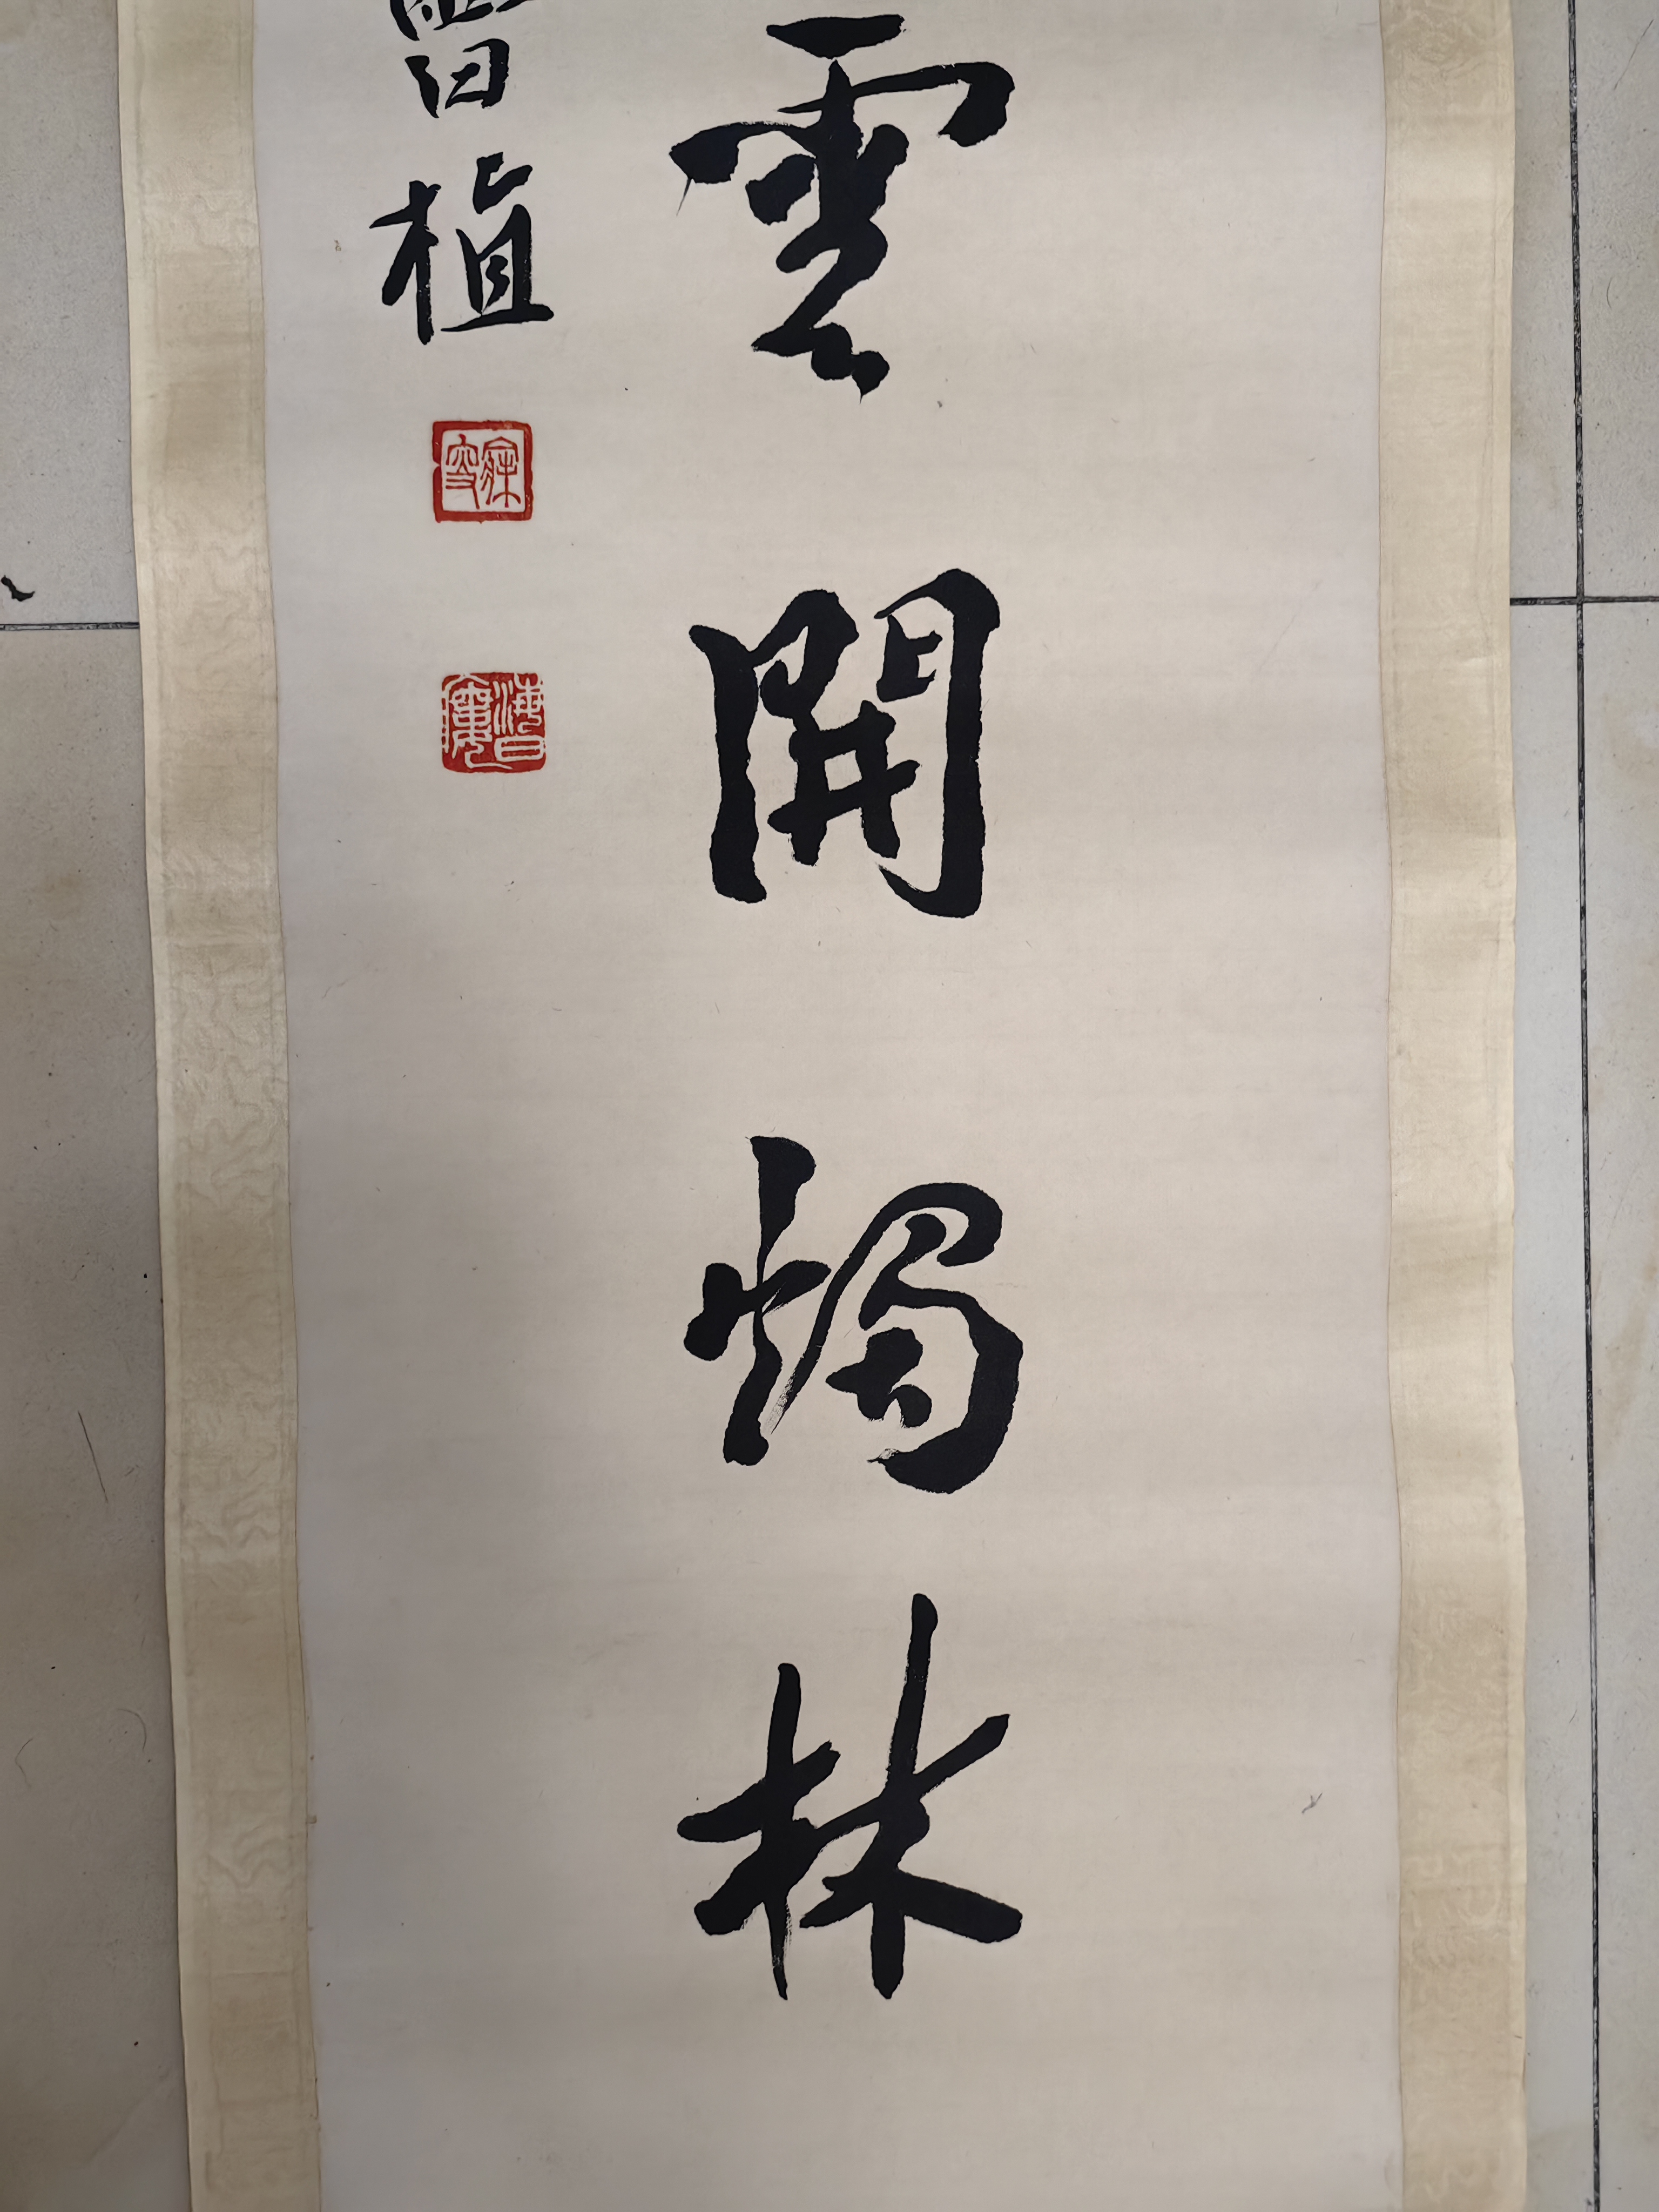 雲開燭林
曾植
寐叟
海日廔